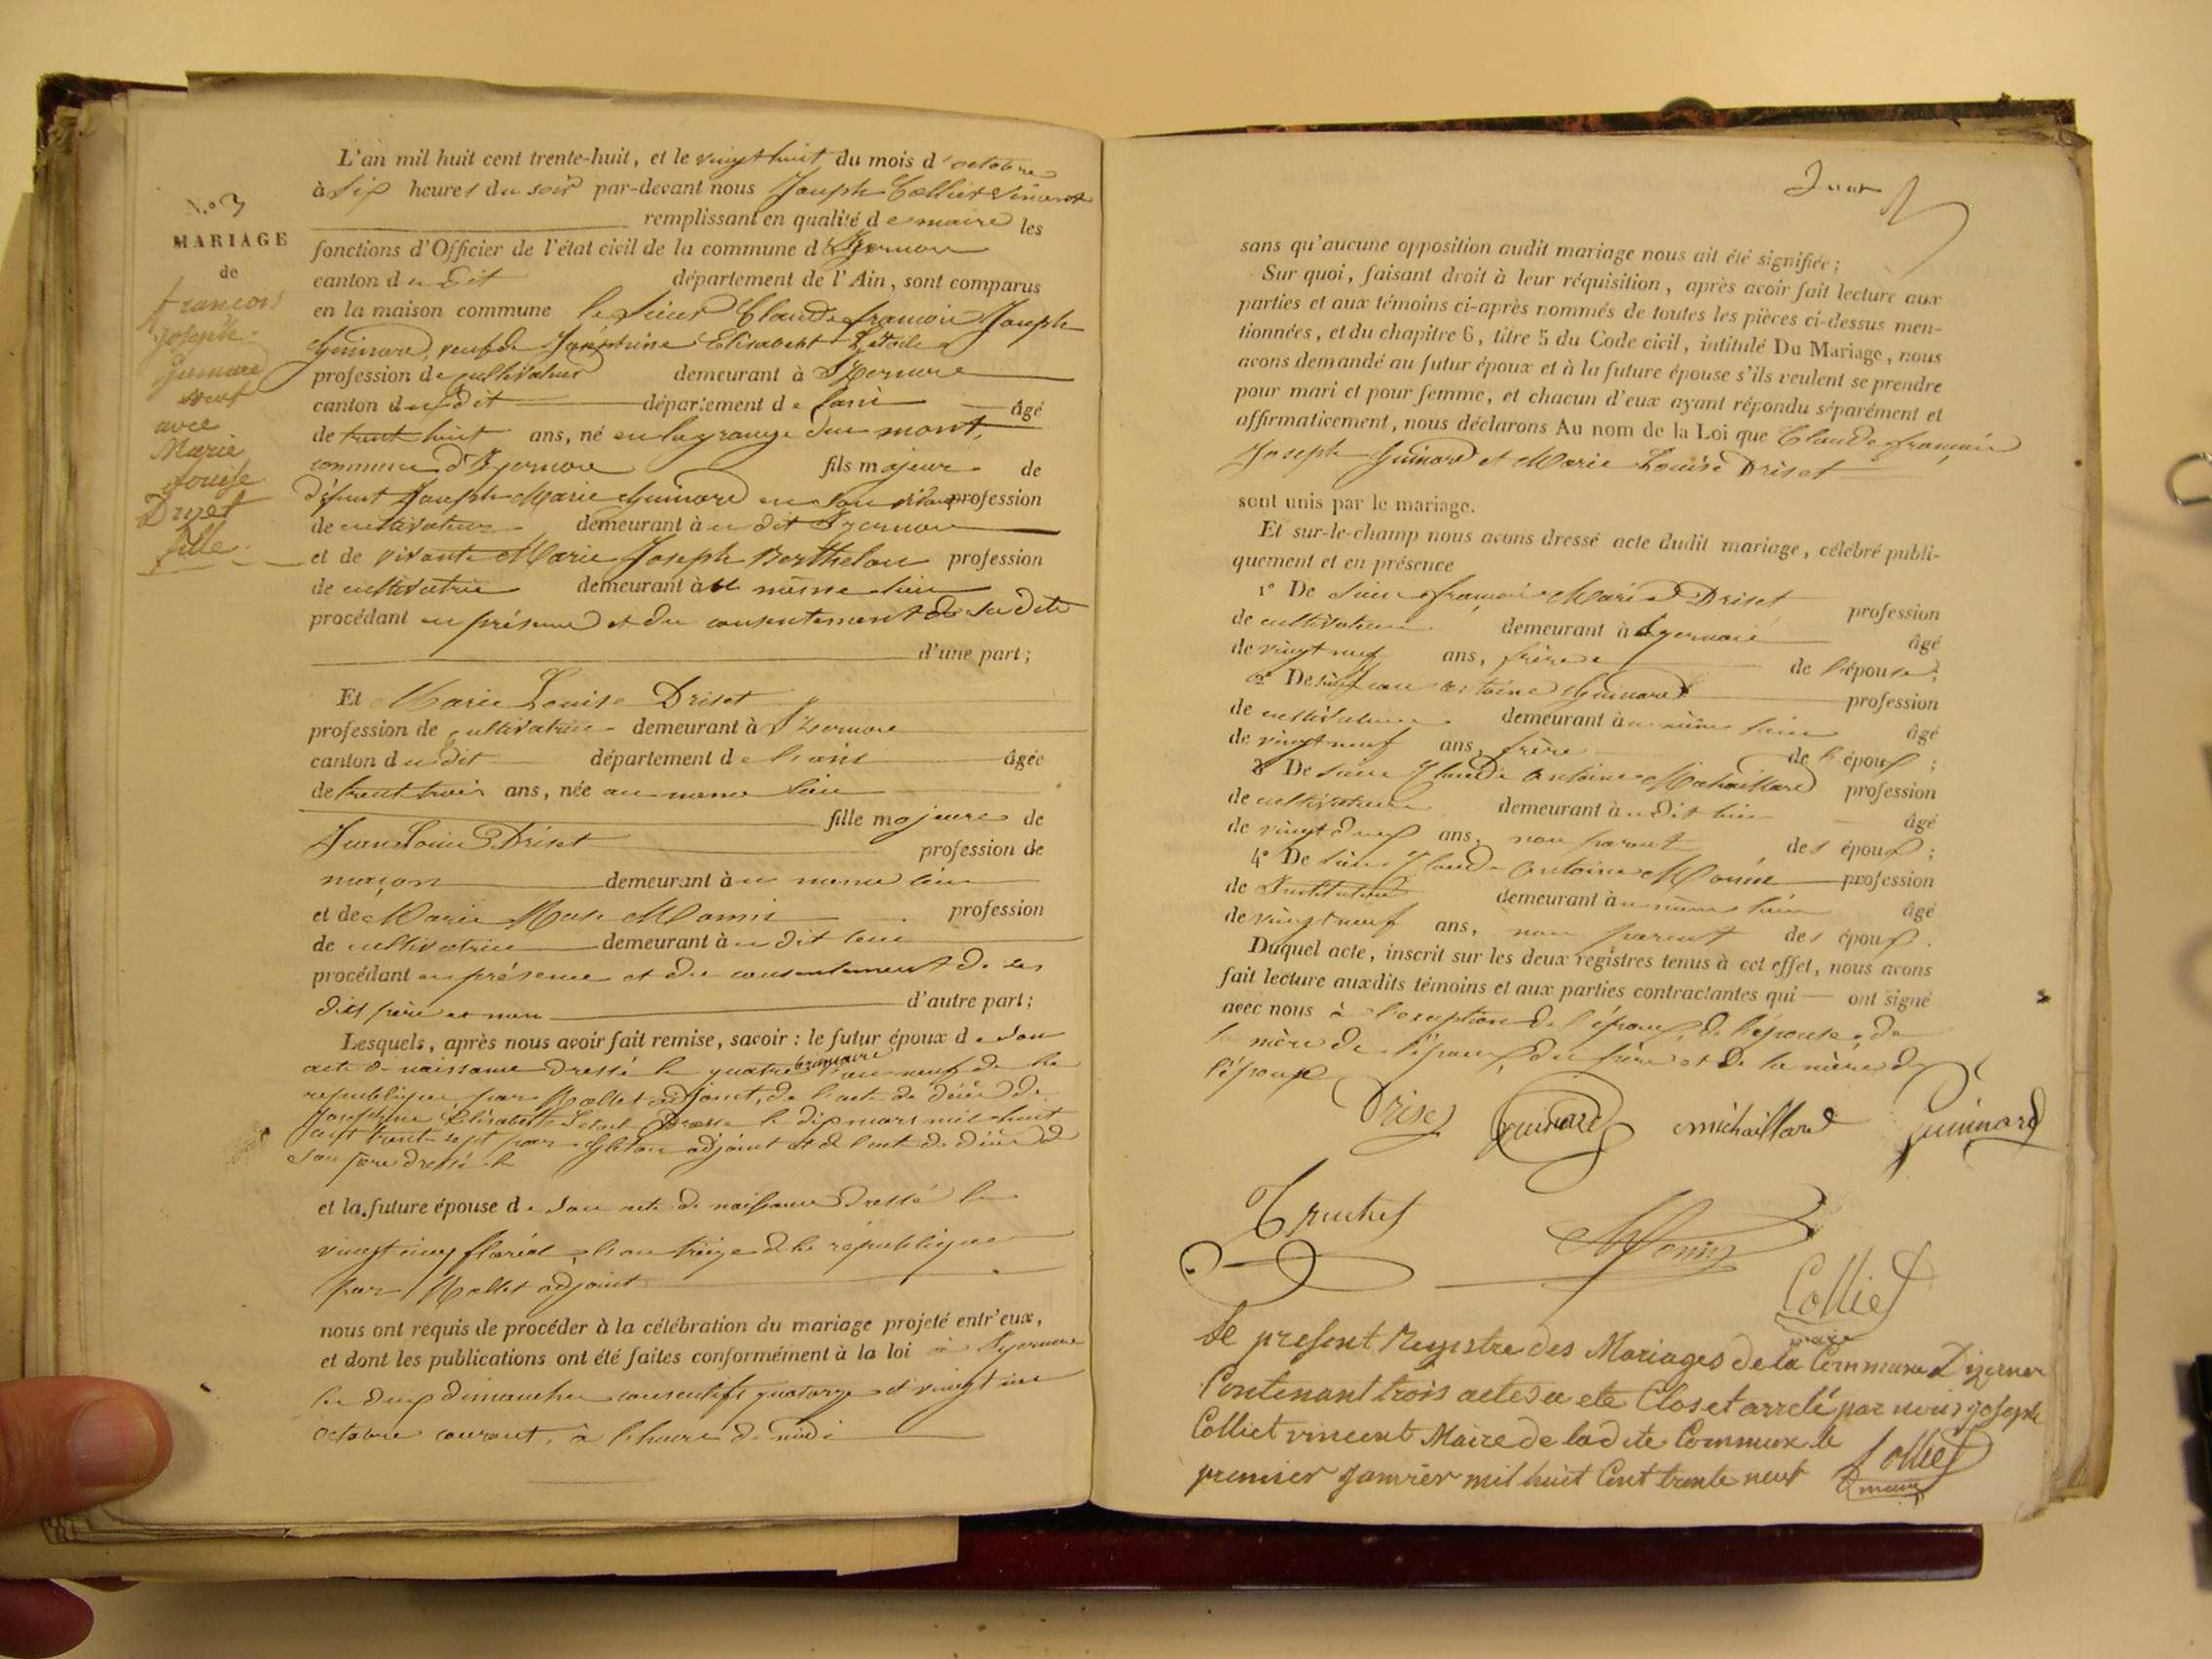 N.o 3
MARIAGE
de
francois
joseph
Guinard
veuf
avec
Marie
Louise
Drizet
fille
L'an mil huit cent trente-huit, et le vingt huit du mois d'octobre
à six heures du soir par-devant nous Joseph Colliet Vincent
remplissant en qualité de maire les
fonctions d'Officier de l'état civil de la commune d'Izernore
canton du dit département de l'Ain, sont comparus
en la maison commune le Sieur Claude françois Joseph
Guinard, veuf de Joséphine Elisabeth Letoile
profession de cultivateur demeurant à Izernore
canton du dit département de l'ain âgé
de trent huit ans, né en la grange du mont,
commune d'Izernore fils majeur de
défunt Joseph Marie Guinard en son vivant profession
de cultivateur demeurant à u dit Izernore
et de vivante Marie Joseph Berthelon profession
de cultivatrice demeurant à u même lieu
procédant en présence et du consentement de sa dite
d'une part;
Et Marie Louise Driset
profession de cultivatrice demeurant à Izernore
canton du dit département de l'ain âgée
de trent trois ans, née au meme lieu
fille majeure de
Jean Louis Driset profession de
maçon demeurant à u meme lieu
et de Marie Rose Monin profession
de cultivatrice demeurant à u dit lieu
procédant en présence et du consentement de ses
dits père et mere d'autre part;
Lesquels, après nous avoir fait remise, savoir : le futur époux de son
acte de naissance dressé le quatre brumaire l'an neuf de la
republique par Mollet adjoint, de l'acte de décès de
Josephine Elisabeth dressé le dix mars mil huit
cent trent sept par adjoint et de l'acte de décès de
son père dressé le
et la future épouse de son acte de naissance dressé le
vingt cinq floréal, l'an treize de la république
par Mollet adjoint
nous ont requis de procéder à la célébration du mariage projeté entr'eux,
et dont les publications ont été faites conformément à la loi à Izernore
les deux dimanches consecutifs quatorze et vingt un
octobre courant, à l'heure de midi
sans qu'aucune opposition audit mariage nous ait été signifiée;
Sur quoi, faisant droit à leur réquisition, après avoir fait lecture aux
parties et aux témoins ci-après nommés de toutes les pièces ci-dessus men-
tionnées, et du chapitre 6, titre 5 du Code civil, intitulé Du Mariage, nous
avons demandé au futur époux et à la future épouse s'ils veulent se prendre
pour mari et pour femme, et chacun d'eux ayant répondu séparément et
affirmativement, nous déclarons Au nom de la Loi que Claude françois
Joseph Guinard et Marie Louise Driset
sont unis par le mariage.
Et sur-le-champ nous avons dressé acte dudit mariage, célébré publi-
quement et en présence
1° De Sieur françois Marie Driset profession
de cultivateur demeurant à Izernore âgé
de vingt neuf ans, frère de l'épouse;
2° De Sieur Jean antoine Guinard profession
de cultivateur demeurant à u même lieu âgé
de vingt neuf ans, frère de l'époux;
3 De Sieur Claude Antoine Michaillard profession
de cultivateur demeurant à u dit lieu âgé
de vingt deux ans, non parent des époux;
4° De Sieur Claude Antoine Monin profession
de Instituteur demeurant à u même lieu âgé
de vingt neuf ans, non parent des époux.
Duquel acte, inscrit sur les deux registres tenus à cet effet, nous avons
fait lecture auxdits témoins et aux parties contractantes qui — ont signé
avec nous à l'exception de l'époux, de l'épouse, de
la mère de l'époux, du père et de la mère de
l'épouse
Drizet Guinard michaillard Guinard
Truchet Monin
Colliet
maire
Le present Registre des Mariages de la Commune D'izernore
Contenant trois actes a eté Clos et arreté par nous joseph
Colliet vincent Maire de la dite Commune le
premier Janvier mil huit Cent trente neuf Colliet
maire